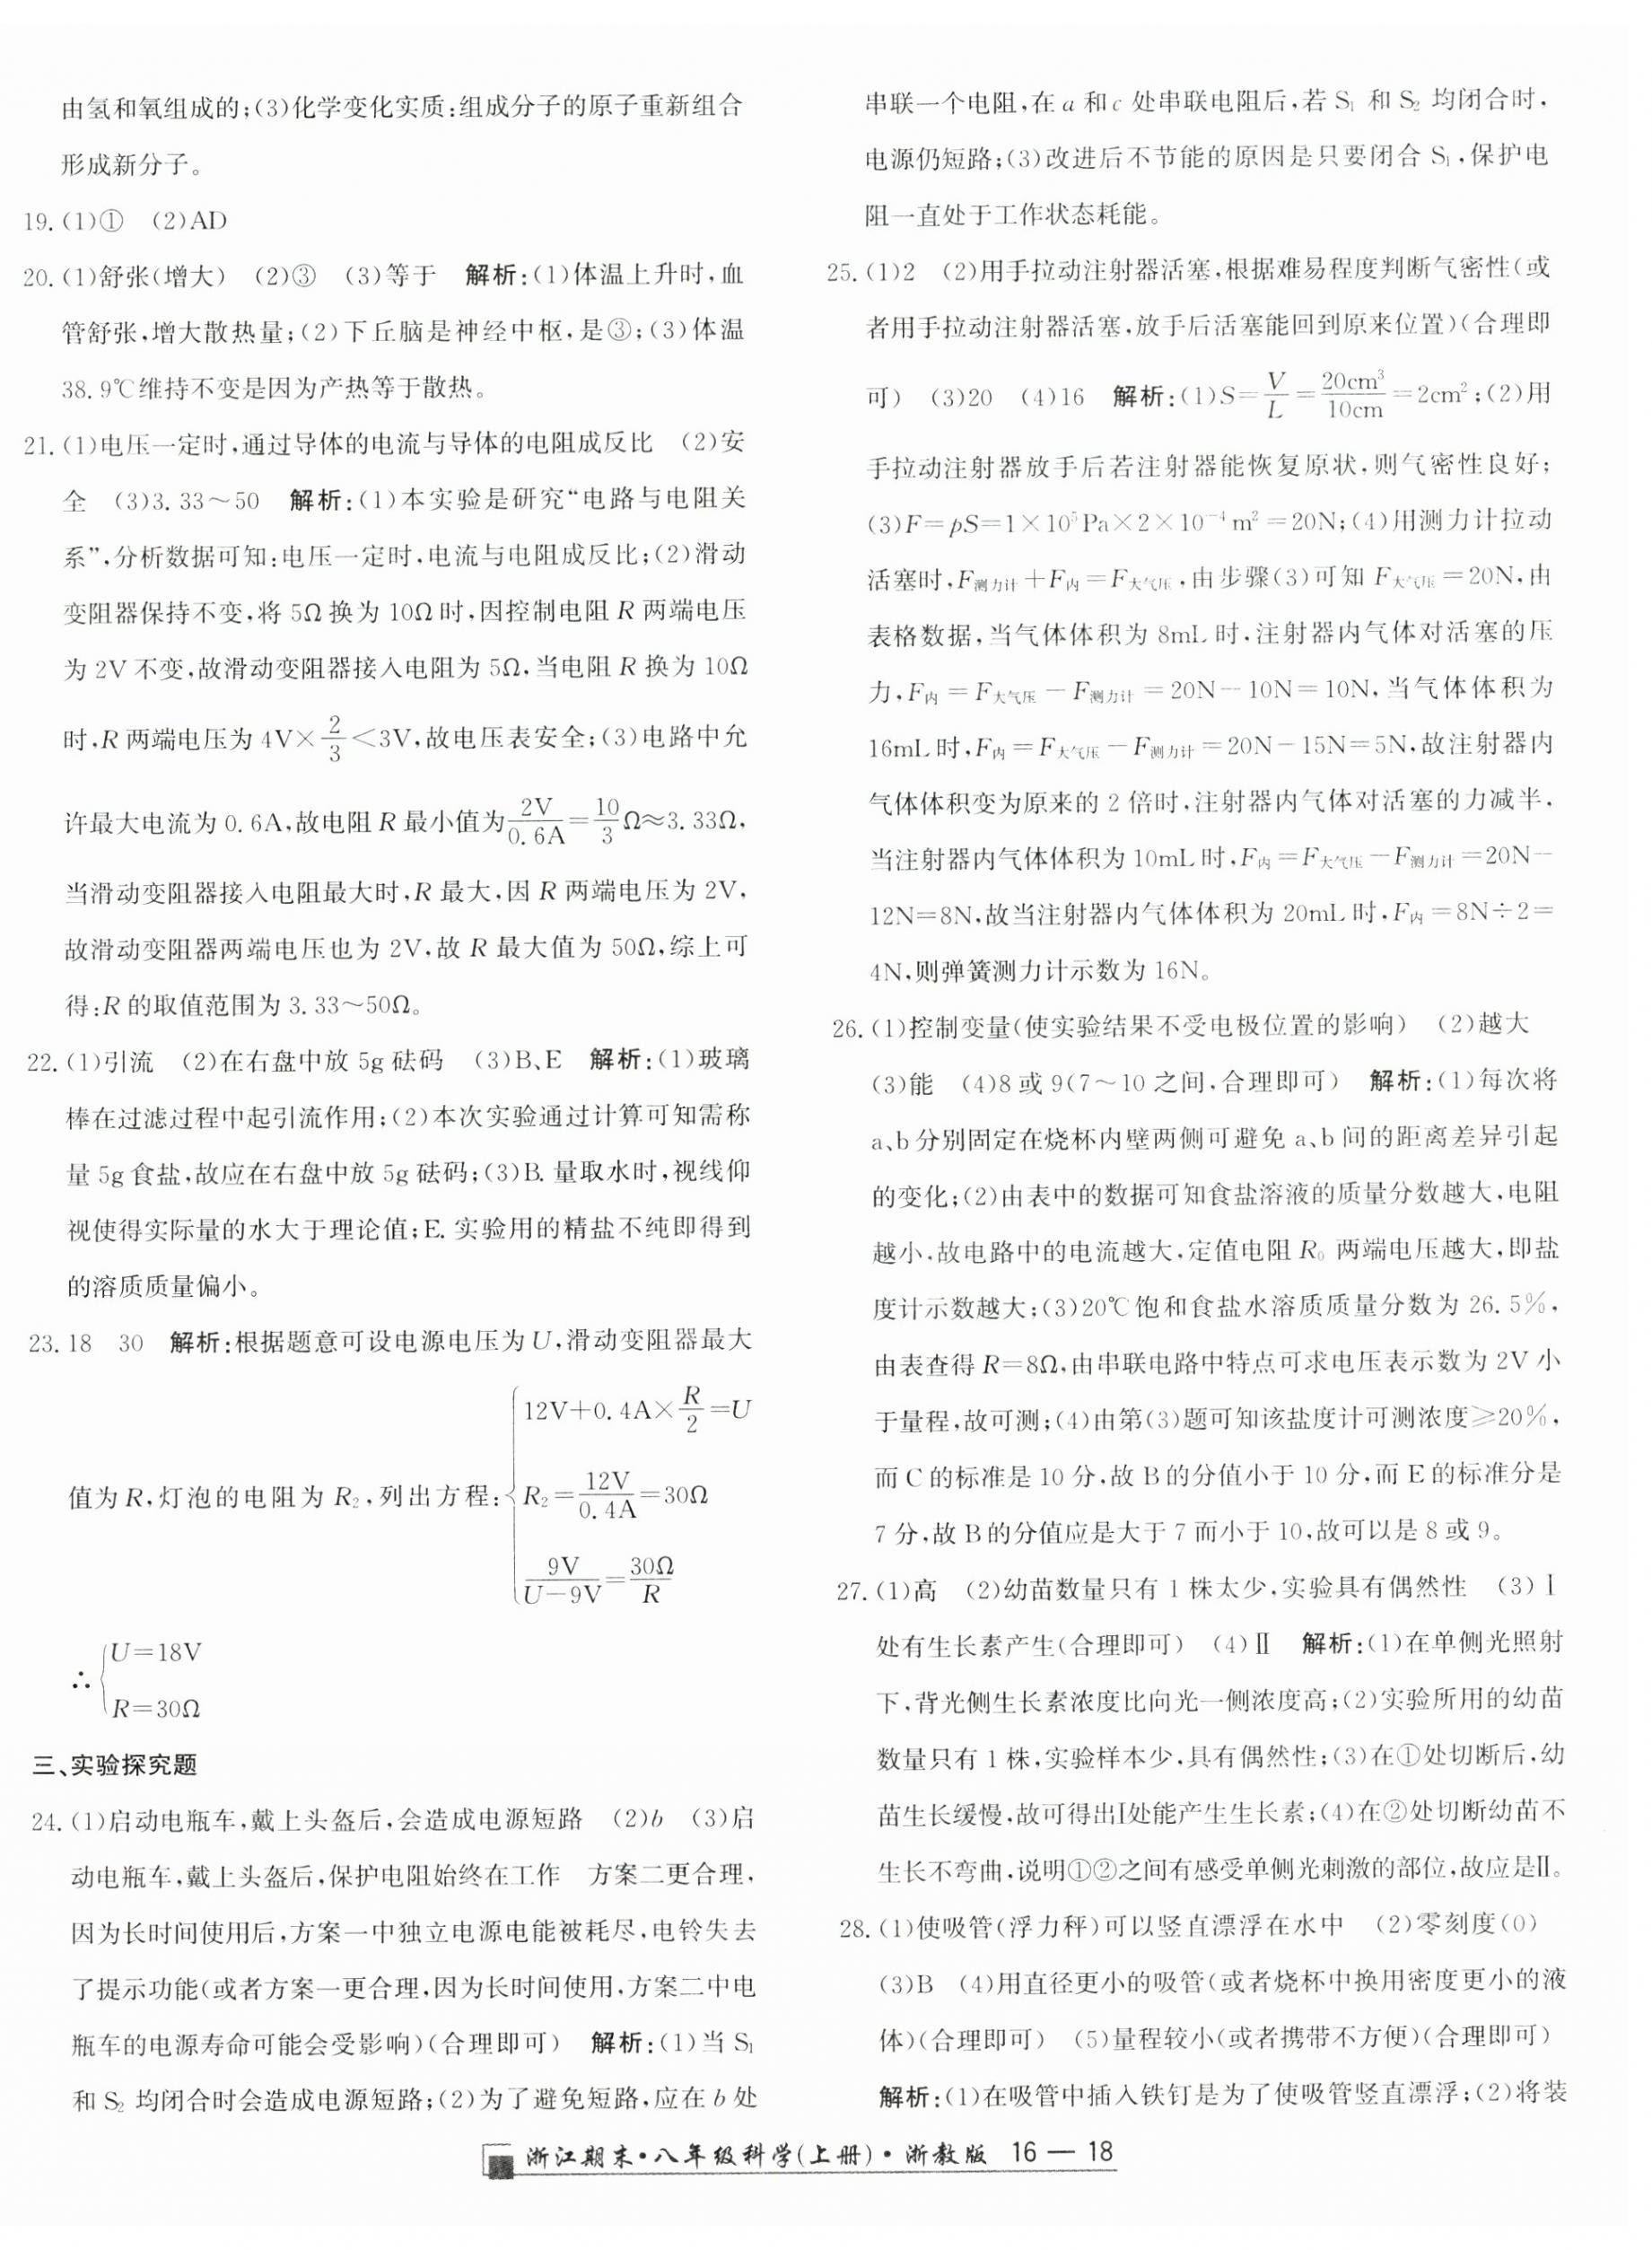 由氢和氧组成的;(3)化学变化实质:组成分子的原子重新组合
形成新分子。
19.(1)① (2)AD
20.(1)舒张(增大) (2)③ (3)等于 解析:(1)体温上升时,血
管舒张,增大散热量;(2)下丘脑是神经中枢,是③;(3)体温
38.9℃维持不变是因为产热等于散热。
21.(1)电压一定时,通过导体的电流与导体的电阻成反比 (2)安
全 (3)3.33～50 解析:(1)本实验是研究“电路与电阻关
系”,分析数据可知:电压一定时,电流与电阻成反比;(2)滑动
变阻器保持不变,将 5Ω 换为 10Ω 时,因控制电阻 R 两端电压
为 2V 不变,故滑动变阻器接入电阻为 5Ω,当电阻 R 换为 10Ω
时,R 两端电压为 4V×2/3<3V,故电压表安全;(3)电路中允
许最大电流为 0.6A,故电阻 R 最小值为2V/0.6A=10/3Ω≈3.33Ω,
当滑动变阻器接入电阻最大时,R 最大,因 R 两端电压为 2V,
故滑动变阻器两端电压也为 2V,故 R 最大值为 50Ω,综上可
得:R 的取值范围为 3.33～50Ω。
22.(1)引流 (2)在右盘中放 5g 砝码 (3)B、E 解析:(1)玻璃
棒在过滤过程中起引流作用;(2)本次实验通过计算可知需称
量 5g 食盐,故应在右盘中放 5g 砝码;(3)B.量取水时,视线仰
视使得实际量的水大于理论值;E.实验用的精盐不纯即得到
的溶质质量偏小。
23.18 30 解析:根据题意可设电源电压为 U,滑动变阻器最大
12V+0.4A×R/2=U
值为 R,灯泡的电阻为 R₂,列出方程:R₂=12V/0.4A=30Ω
9V/(U-9V)=30Ω/R
∴{U=18V
R=30Ω
三、实验探究题
24.(1)启动电瓶车,戴上头盔后,会造成电源短路 (2)b (3)启
动电瓶车,戴上头盔后,保护电阻始终在工作 方案二更合理,
因为长时间使用后,方案一中独立电源电能被耗尽,电铃失去
了提示功能(或者方案一更合理,因为长时间使用,方案二中电
瓶车的电源寿命可能会受影响)(合理即可) 解析:(1)当 S₁
和 S₂ 均闭合时会造成电源短路;(2)为了避免短路,应在 b 处
串联一个电阻,在 a 和 c 处串联电阻后,若 S₁ 和 S₂ 均闭合时,
电源仍短路;(3)改进后不节能的原因是只要闭合 S₁,保护电
阻一直处于工作状态耗能。
25.(1)2 (2)用手拉动注射器活塞,根据难易程度判断气密性(或
者用手拉动注射器活塞,放手后活塞能回到原来位置)(合理即
可) (3)20 (4)16 解析:(1)S=V/L=20cm³/10cm=2cm²;(2)用
手拉动注射器放手后若注射器能恢复原状,则气密性良好;
(3)F=pS=1×10⁵Pa×2×10⁻⁴m²=20N;(4)用测力计拉动
活塞时,F测力计+F内=F大气压,由步骤(3)可知 F大气压=20N,由
表格数据,当气体体积为 8mL 时,注射器内气体对活塞的压
力,F内=F大气压-F测力计=20N-10N=10N,当气体体积为
16mL 时,F内=F大气压-F测力计=20N-15N=5N,故注射器内
气体体积变为原来的 2 倍时,注射器内气体对活塞的力减半,
当注射器内气体体积为 10mL 时,F内=F大气压-F测力计=20N-
12N=8N,故当注射器内气体体积为 20mL 时,F内=8N÷2=
4N,则弹簧测力计示数为 16N。
26.(1)控制变量(使实验结果不受电极位置的影响) (2)越大
(3)能 (4)8 或 9(7～10 之间,合理即可) 解析:(1)每次将
a、b 分别固定在烧杯内壁两侧可避免 a、b 间的距离差异引起
的变化;(2)由表中的数据可知食盐溶液的质量分数越大,电阻
越小,故电路中的电流越大,定值电阻 R₀ 两端电压越大,即盐
度计示数越大;(3)20℃饱和食盐水溶质质量分数为 26.5%,
由表查得 R=8Ω,由串联电路中特点可求电压表示数为 2V 小
于量程,故可测;(4)由第(3)题可知该盐度计可测浓度≥20%,
而 C 的标准是 10 分,故 B 的分值小于 10 分,而 E 的标准分是
7 分,故 B 的分值应是大于 7 而小于 10,故可以是 8 或 9。
27.(1)高 (2)幼苗数量只有 1 株太少,实验具有偶然性 (3)Ⅰ
处有生长素产生(合理即可) (4)Ⅱ 解析:(1)在单侧光照射
下,背光侧生长素浓度比向光一侧浓度高;(2)实验所用的幼苗
数量只有 1 株,实验样本少,具有偶然性;(3)在①处切断后,幼
苗生长缓慢,故可得出Ⅰ处能产生生长素;(4)在②处切断幼苗不
生长不弯曲,说明①②之间有感受单侧光刺激的部位,故应是Ⅱ。
28.(1)使吸管(浮力秤)可以竖直漂浮在水中 (2)零刻度(0)
(3)B (4)用直径更小的吸管(或者烧杯中换用密度更小的液
体)(合理即可) (5)量程较小(或者携带不方便)(合理即可)
解析:(1)在吸管中插入铁钉是为了使吸管竖直漂浮;(2)将装
浙江期末·八年级科学(上册)·浙教版 16 — 18